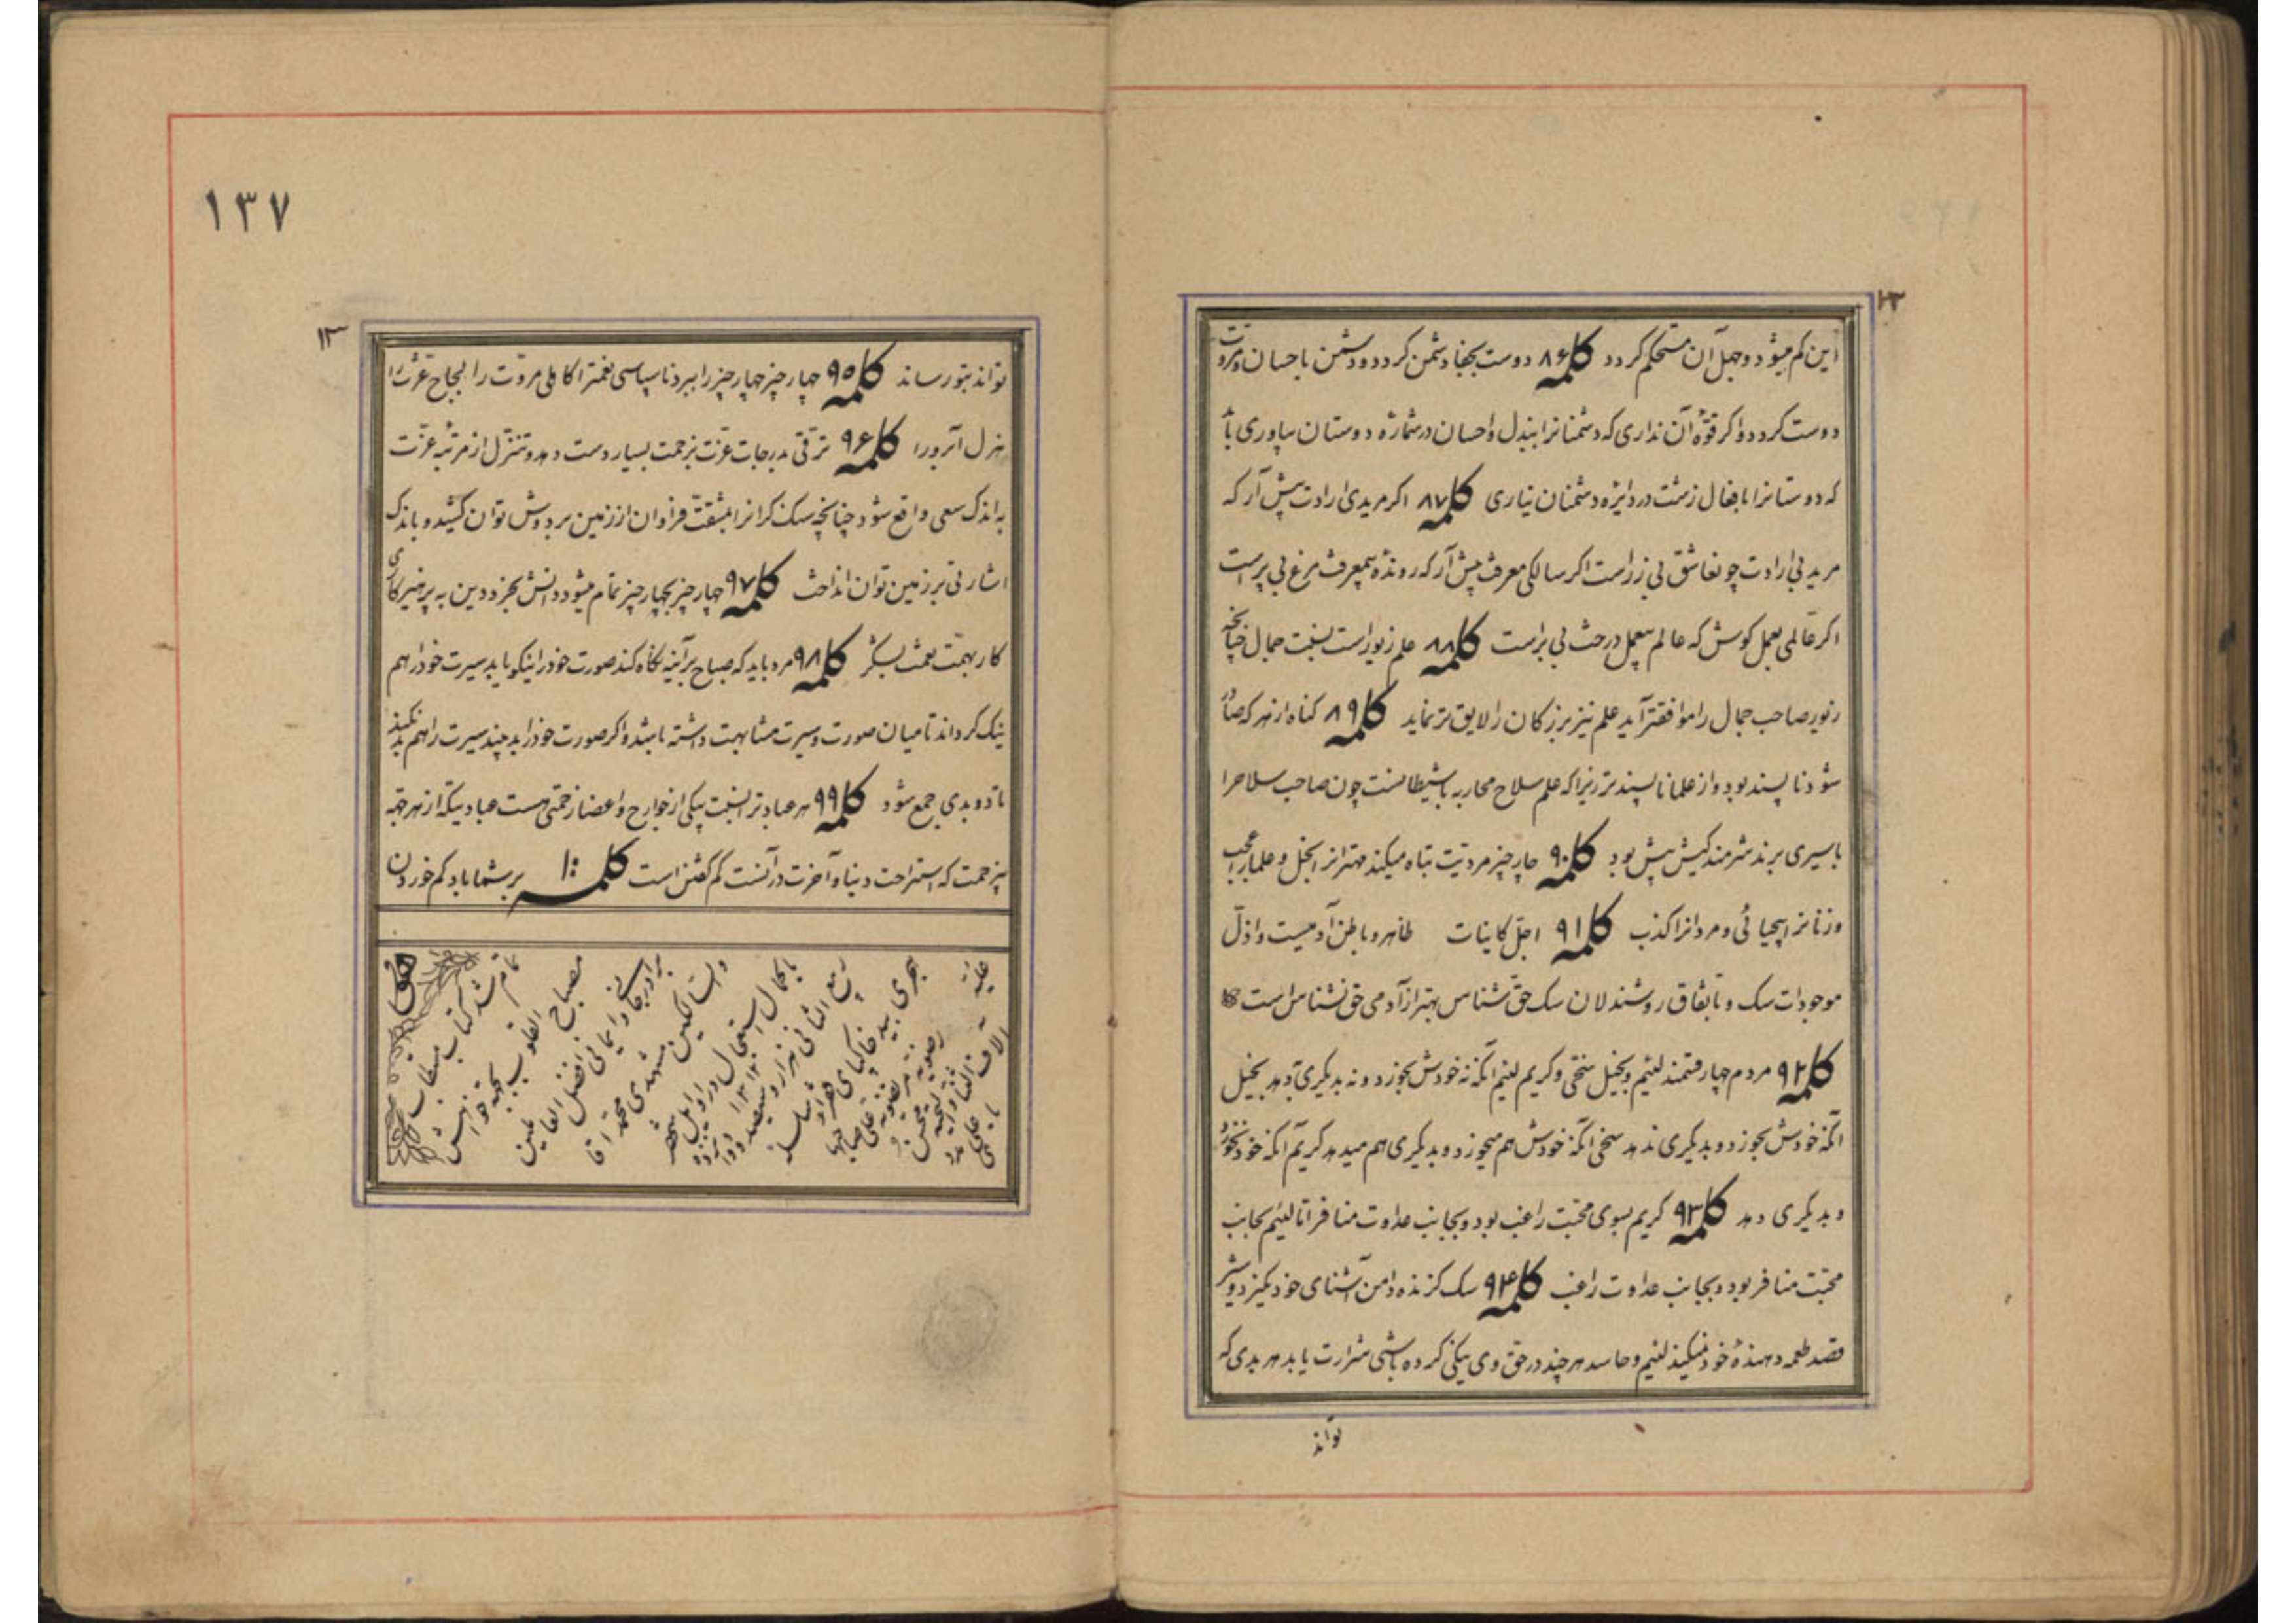 ۱۲
این کم میشود و جهل آن مستحکم گردد کلمه ۸۶ دوست بجفا دشمن گردد و دشمن باحسان و مروت
دوست گردد و اگر قوّه آن نداری که دشمنانرا ببذل و احسان در شماره دوستان بیاوری با
که دوستانرا بافعال زشت در دایره دشمنان نیاری کلمه ۸۷ اگر مریدی ارادت پیش آر که
مرید بی ارادت چو نعاشق بی زر است اگر سالکی معرفت پیش آر که رونده بیمعرفت مرغ بی پر است
اگر عالمی بعمل کوش که عالم بیعمل درخت بی بر است کلمه ۸۸ علم زیور است بنسبت جمال چنانچه
زیور صاحب جمال را موافقتر آید علم نیز بزرکان را لایق تر نماید کلمه ۸۹ کناه از هر که صادر
شود ناپسند بود و از علما ناپسندتر زیرا که علم سلاح محاربه با شیطانست چون صاحب سلاحرا
باسیری برند شرمندکیش بیش بود کلمه ۹۰ چار چیز مردیت تباه میکند مهتر انرا بخل و علما را عجب
و زنانرا بیحیائی و مردانرا کذب کلمه ۹۱ اجلّ کاینات ظاهر و باطن آدمیست و اذلّ
موجودات سک و باتفاق روشندلان سک حق شناس بهتر از آدمی حق نشناس است
کلمه ۹۲ مردم چهار قسمند لئیم و بخیل سخی و کریم لئیم آنکه نه خودش بخورد و نه بدیکری دهد بخیل
آنکه خودش بخورد و بدیکری ندهد سخی آنکه خودش هم میخورد و بدیکری هم میدهد کریم آنکه خود نخورد
و بدیکری دهد کلمه ۹۳ کریم بسوی محبّت راغب بود و بجانب عداوت منافر امّا لئیم بجانب
محبّت منافر بود و بجانب عداوت راغب کلمه ۹۴ سک کزنده دامن آشنای خود نکیرد و شیر
قصد طعمه دهنده خود نمیکند لئیم و حاسد هر چند در حق وی نیکی کرده باشی شرارت یابد هر بدی که
تواند
۱۳۷
۱۳
تواند بتو رساند کلمه ۹۵ چهار چیز چهار چیز را ببرد ناسپاسی نعمترا کاهلی مروّت را لجاج عزّت را
هزل آبرو را کلمه ۹۶ ترقّی بدرجات عزّت بزحمت بسیار دست دهد و تنزّل از مرتبه عزّت
به اندک سعی واقع شود چنانچه سنک کرانرا بمشقّت فراوان از زمین بر دوش توان کشید و باندک
اشارتی بر زمین توان انداخت کلمه ۹۷ چهار چیز بچهار چیز تمام میشود دانش بخرد و دین به پرهیزکاری
کار بهمّت نعمت بشکر کلمه ۹۸ مرد باید که صباح بر آینه نکاه کند صورت خود را نیکو یابد سیرت خود را هم
نیک کرداند تا میان صورت و سیرت مشابهت داشته باشد و اگر صورت خود را بد بیند سیرت را هم بد نکند
تا دو بدی جمع شود کلمه ۹۹ هر عبادترا بنسبت یکی از جوارح و اعضا زحمتی هست عبادتیکه از هر جهة
بیزحمت که استراحت دنیا و آخرت در آنست کم کفتن است کلمه ۱۰۰ بر شما باد کم خوردن
هو
تمام شد کتاب مستطاب
مصباح القلوب بجهة خواهش
برادر جانی و ایمانی افضل العارفین
و السالکین مشهدی محمّد اقا
باکمال استعجال در اوایل شهر
ربیع الثانی ۱۳۱۲ هزار و سیصد و دوازده
هجری بید خاکپای فقراء سلسله
رضویه مرتضویه علی صاحبها
آلاف الثناء و التحیه محسن